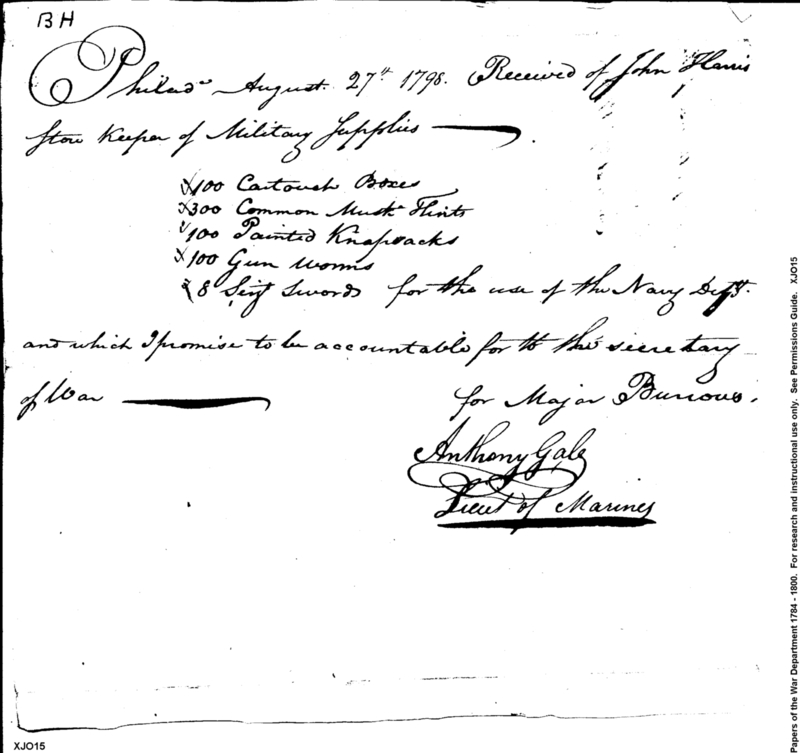 BH
Philad.a August 27th 1798. Received of John Harris
Store Keeper of Military Supplies
100 Cartouch Boxes
300 Common Musk.t Flints
100 Painted Knapsacks
100 Gun worms
8 Serj.t Swords for the use of the Navy Dep.t.
and which I promise to be accountable for to the secretary
of War
for Major Burrows.
Anthony Gale
Lieut of Marines
XJO15
Papers of the War Department 1784 - 1800. For research and instructional use only. See Permissions Guide. XJO15